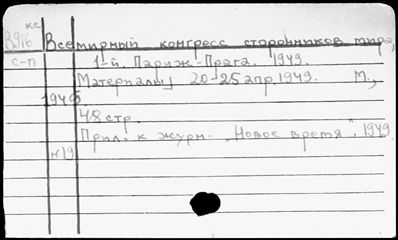 кс
В916 Всемирный конгресс сторонников мира,
с-п 1-й. Париж-Прага. 1949.
Материалы 20-25 апр 1949. М.,
1949
48 стр.
Прил. к журн. "Новое время". 1949
№19